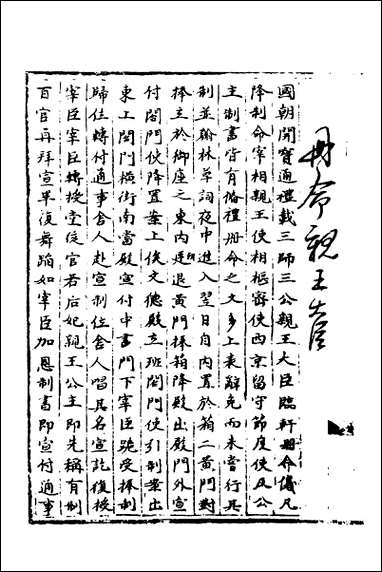 冊命親王大臣
國朝開寶通禮載三師三公親王大臣臨軒冊命儀凡
降制命宰相親王使相樞密使西京留守節度使及公
主制書皆有備禮冊命之文多上表辭免而未嘗行其
制並翰林草詞夜中進入翌日自内置於箱二黄門對
捧立於御座之東内退黄門捧箱降殿出殿門外宣
付閤門使降置案上俟文德殿立班閤門使引制案出
東上閤門橫街南當殿宣付中書門下宰臣跪受捧制
歸位轉付通事舍人赴宣制位舍人唱其名宣訖復授
宰臣宰臣轉授堂從官若后妃親王公主即先稱有制
百官再拜宣畢復舞蹈如宰臣加恩制書即宣付通事